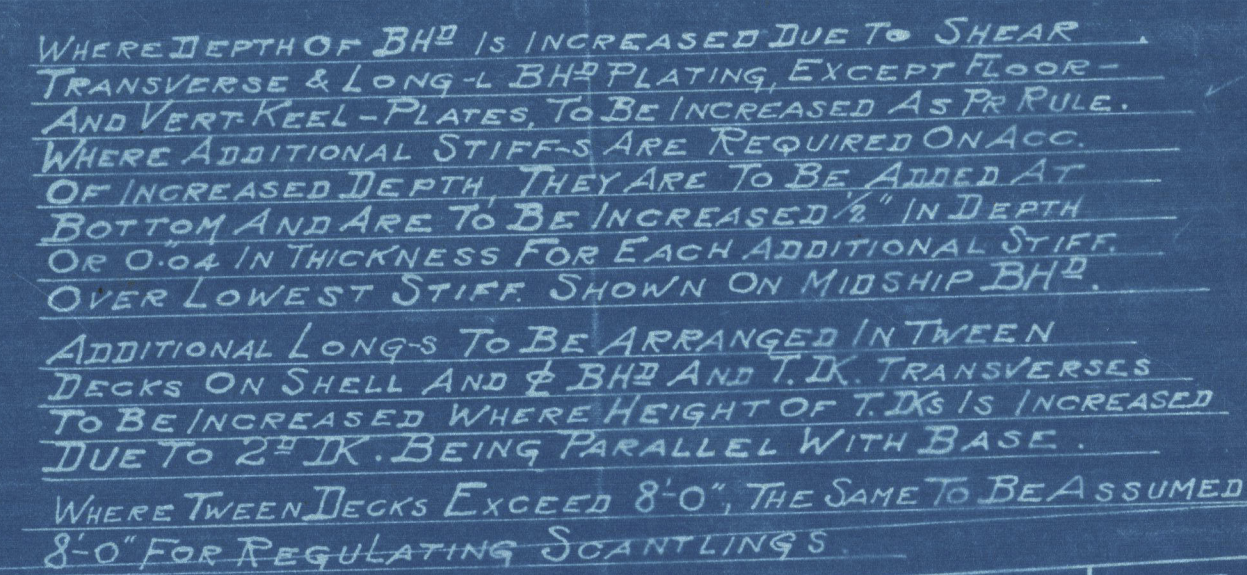 WHERE DEPTH OF BHD IS INCREASED DUE TO SHEAR
TRANSVERSE & LONG-L BHD PLATING, EXCEPT FLOOR-
AND VERT-KEEL-PLATES, TO BE INCREASED AS PR RULE.
WHERE ADDITIONAL STIFF-S ARE REQUIRED ON ACC.
OF INCREASED DEPTH, THEY ARE TO BE ADDED AT
BOTTOM AND ARE TO BE INCREASED 1/2" IN DEPTH
OR 0.04 IN THICKNESS FOR EACH ADDITIONAL STIFF.
OVER LOWEST STIFF. SHOWN ON MIDSHIP BHD.
ADDITIONAL LONG-S TO BE ARRANGED IN TWEEN
DECKS ON SHELL AND ₵ BHD AND T. DK. TRANSVERSES
TO BE INCREASED WHERE HEIGHT OF T. DKS IS INCREASED
DUE TO 2D DK. BEING PARALLEL WITH BASE.
WHERE TWEEN DECKS EXCEED 8'-0", THE SAME TO BE ASSUMED
8'-0" FOR REGULATING SCANTLINGS.